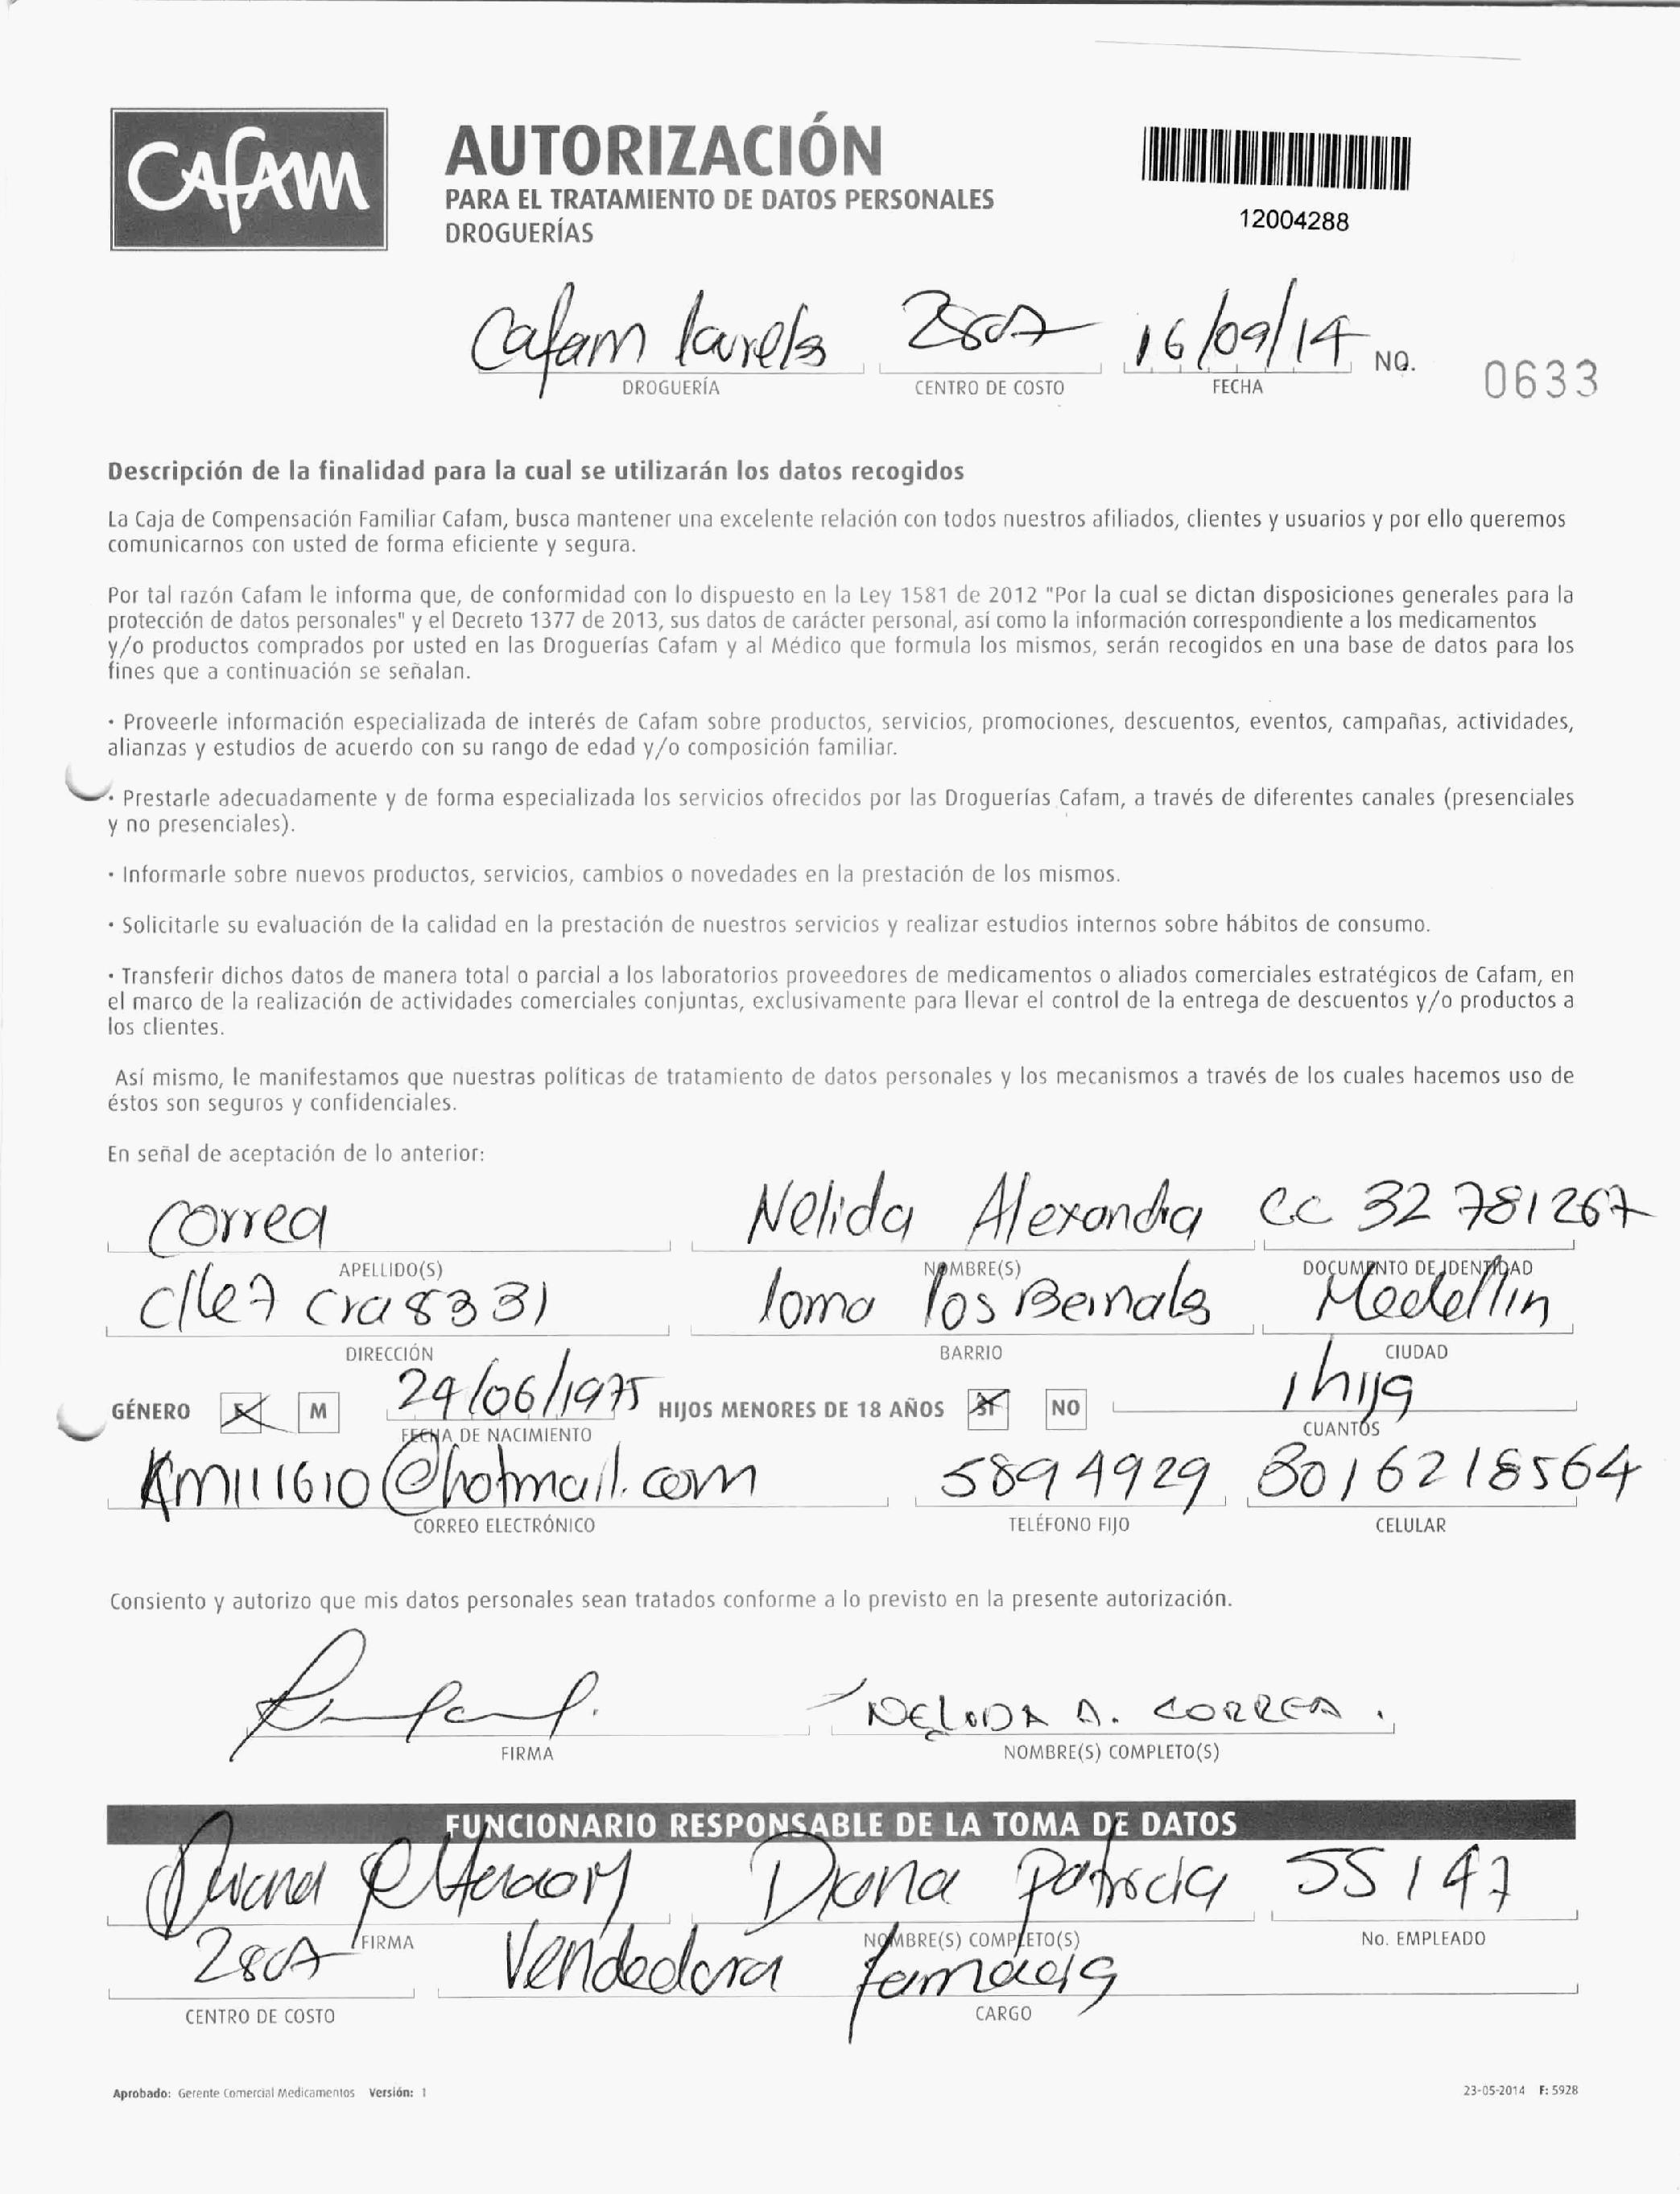 CAFAM
AUTORIZACIÓN
PARA EL TRATAMIENTO DE DATOS PERSONALES
DROGUERÍAS
12004288
Cafam laureles 2807 16/09/14 NO. 0633
DROGUERÍA CENTRO DE COSTO FECHA
Descripción de la finalidad para la cual se utilizarán los datos recogidos
La Caja de Compensación Familiar Cafam, busca mantener una excelente relación con todos nuestros afiliados, clientes y usuarios y por ello queremos
comunicarnos con usted de forma eficiente y segura.
Por tal razón Cafam le informa que, de conformidad con lo dispuesto en la Ley 1581 de 2012 "Por la cual se dictan disposiciones generales para la
protección de datos personales" y el Decreto 1377 de 2013, sus datos de carácter personal, así como la información correspondiente a los medicamentos
y/o productos comprados por usted en las Droguerías Cafam y al Médico que formula los mismos, serán recogidos en una base de datos para los
fines que a continuación se señalan.
· Proveerle información especializada de interés de Cafam sobre productos, servicios, promociones, descuentos, eventos, campañas, actividades,
alianzas y estudios de acuerdo con su rango de edad y/o composición familiar.
· Prestarle adecuadamente y de forma especializada los servicios ofrecidos por las Droguerías Cafam, a través de diferentes canales (presenciales
y no presenciales).
· Informarle sobre nuevos productos, servicios, cambios o novedades en la prestación de los mismos.
· Solicitarle su evaluación de la calidad en la prestación de nuestros servicios y realizar estudios internos sobre hábitos de consumo.
· Transferir dichos datos de manera total o parcial a los laboratorios proveedores de medicamentos o aliados comerciales estratégicos de Cafam, en
el marco de la realización de actividades comerciales conjuntas, exclusivamente para llevar el control de la entrega de descuentos y/o productos a
los clientes.
Así mismo, le manifestamos que nuestras políticas de tratamiento de datos personales y los mecanismos a través de los cuales hacemos uso de
éstos son seguros y confidenciales.
En señal de aceptación de lo anterior:
Correa Nelida Alexandra CC 32 781267
APELLIDO(S) NOMBRE(S) DOCUMENTO DE IDENTIDAD
Clle7 Cra 83 31 loma los Bernales Medellin
DIRECCIÓN BARRIO CIUDAD
GÉNERO F M 29/06/1975 HIJOS MENORES DE 18 AÑOS SI NO 1 hija
FECHA DE NACIMIENTO CUANTOS
Km111610@hotmail.com 5894929 3016218564
CORREO ELECTRÓNICO TELÉFONO FIJO CELULAR
Consiento y autorizo que mis datos personales sean tratados conforme a lo previsto en la presente autorización.
NELIDA A. CORREA.
FIRMA NOMBRE(S) COMPLETO(S)
FUNCIONARIO RESPONSABLE DE LA TOMA DE DATOS
Diana Patricia 55147
FIRMA NOMBRE(S) COMPLETO(S) No. EMPLEADO
2807 Vendedora farmacia
CENTRO DE COSTO CARGO
Aprobado: Gerente Comercial Medicamentos Versión: 1
23-05-2014 F: 5928